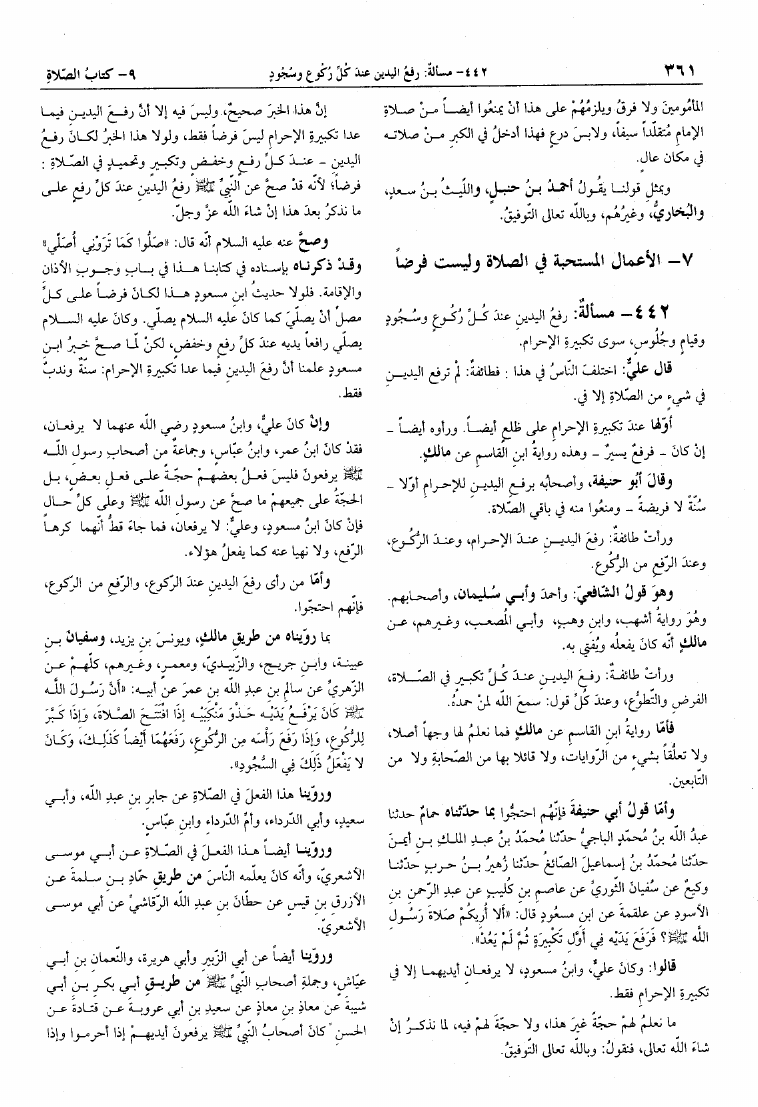 ٣٦١
٤٤٢- مسألةٌ: رفعُ اليدين عندَ كُلِّ رُكُوعٍ وسُجُودٍ
٩- كتابُ الصَّلاةِ
المأمومينَ ولا فرقُ ويلزمُهُمْ على هذا أنْ يمنعُوا أيضاً منْ صلاةِ
الإمامِ مُتقلّداً سيفاً، ولابسَ درعٍ فهذا أدخلُ في الكبرِ منْ صلاتـه
في مكان عالٍ.
وبمثلِ قولنا يقُولُ أحمدُ بنُ حنبلٍ، واللّيثُ بنُ سعدٍ،
والبُخاريُّ، وغيرُهُم، وباللّه تعالى التّوفيقُ.
٧- الأعمال المستحبة في الصلاة وليست فرضاً
٤٤٢- مسألةٌ: رفعُ اليدينِ عندَ كُلِّ رُكُوعٍ وسُجُودٍ
وقيامٍ وجُلُوسٍ، سوى تكبيرةِ الإحرام.
قال عليٌّ: اختلفَ النّاسُ في هذا : فطائفةٌ: لمْ ترفعِ اليديـن
في شيءٍ من الصّلاةِ إلا في.
أوّلها عندَ تكبيرةِ الإحرامِ على ظلعٍ أيضاً. ورأوه أيضاً –
إنْ كانَ – فرفعٌ يسيرٌ – وهذه روايةُ ابنِ القاسمِ عن مالكٍ.
وقالَ أبُو حنيفةَ، وأصحابُه برفعِ اليدينِ للإحرامِ أوّلا –
سُنّةً لا فريضةً – ومنعُوا منه في باقي الصّلاة.
ورأتْ طائفةٌ: رفعَ اليديـنِ عنـدَ الإحرامِ، وعندَ الرُّكُوعِ،
وعندَ الرّفعِ من الرُّكُوعِ.
وهوَ قولُ الشّافعيِّ: وأحمدَ وأبـي سُـليمانَ، وأصحابهم.
وهُوَ روايةُ أشهبَ، وابنِ وهبٍ، وأبـي المُصعبِ، وغيرهم، عـن
مالكٍ أنّه كانَ يفعلُه ويُفتي به.
ورأتْ طائفةٌ: رفـعَ اليدينِ عندَ كُـلِّ تكبيرٍ في الصّـلاة،
الفرضِ والتّطوُّعِ، وعندَ كُلِّ قولِ: سمعَ اللّه لمنْ حمدهُ.
فأمّا روايةُ ابن القاسمِ عن مالكٍ فما نعلمُ لها وجهاً أصلا،
ولا تعلُّقاً بشيءٍ من الرّوايات، ولا قائلا بها من الصّحابةِ ولا من
التّابعين.
وأمّا قولُ أبي حنيفةَ فإنّهُم احتجُّوا بما حدّثناه حمامٌ حدثنا
عبدُ اللّه بنُ مُحمّدٍ الباجيُّ حدّثنا مُحمّدُ بنُ عبـدِ الملكِ بـنِ أيمـنَ
حدّثنا مُحمّدُ بنُ إسماعيلَ الصّائغُ حدّثنا زُهيرُ بـنُ حربٍ حدّثنـا
وكيعٌ عن سُفيانَ الثّوريِّ عن عاصمِ بنِ كُليبٍ عن عبدِ الرّحمنِ بنِ
الأسودِ عن علقمةَ عن ابنِ مسعُودٍ قال: «أَلا أُرِيكُمْ صَلاةَ رَسُولِ
اللَّه ﷺ؟ فَرَفَعَ يَدَيْهِ فِي أَوَّلِ تَكْبِيرَةٍ ثُمَّ لَمْ يَعُدْ».
قالوا: وكانَ عليٌّ، وابنُ مسعودٍ، لا يرفعـان أيديهمـا إلا في
تكبيرةِ الإحرام فقط.
ما نعلمُ لهمْ حجّةً غيرَ هذا، ولا حجّةَ لهمْ فيه، لما نذكـرُ إنْ
شاءَ اللّه تعالى، فنقولُ: وباللّه تعالى التّوفيقُ.
إنّ هذا الخبرَ صحيحٌ، وليسَ فيه إلا أنّ رفـعَ اليديـنِ فيمـا
عدا تكبيرةِ الإحرام ليسَ فرضاً فقط، ولولا هذا الخبرُ لكـانَ رفـعُ
اليدينِ – عنـدَ كـلِّ رفـعٍ وخفـضٍ وتكبـيرٍ وتحميدٍ في الصّلاة :
فرضاً؛ لأنّه قدْ صحّ عن النّبيِّ ﷺ رفعُ اليدين عندَ كلِّ رفعٍ علـى
ما نذكرُ بعدَ هذا إنْ شاءَ اللّه عزّ وجلّ.
وصحّ عنه عليه السلام أنّه قال: «صَلُّوا كَمَا تَرَوْنِي أُصَلِّي»
وقـدْ ذكرنـاه بإسناده في كتابنـا هـذا في بـابِ وجـوبِ الأذان
والإقامة. فلولا حديثُ ابنِ مسعودٍ هـذا لكـانَ فرضـاً علـى كـلِّ
مصلٍّ أنْ يصلّيَ كما كانَ عليه السلام يصلّي. وكانَ عليه السـلام
يصلّي رافعاً يديه عندَ كلِّ رفعٍ وخفضٍ، لكنْ لمّـا صـحّ خـبرُ ابـنِ
مسعودٍ علمنا أنّ رفعَ اليدينِ فيما عدا تكبيرةِ الإحرام: سنّةٌ وندبٌ
فقط.
وإنْ كانَ عليٌّ، وابنُ مسعودٍ رضي اللّه عنهما لا يرفعـان،
فقدْ كانَ ابنُ عمرَ، وابنُ عبّاسٍ، وجماعةٌ من أصحابِ رسولِ اللّـه
ﷺ يرفعونَ فليسَ فعـلُ بعضهـمْ حجّـةً علـى فعـلِ بعـضٍ، بـل
الحجّةُ على جميعهمْ ما صحّ عن رسولِ اللّه ﷺ وعلى كلِّ حـال
فإنْ كانَ ابنُ مسعودٍ، وعليٌّ: لا يرفعان، فما جاءَ قطُّ أنّهما كرهـا
الرّفع، ولا نهيا عنه كما يفعلُ هؤلاء.
وأمّا من رأى رفعَ اليدينِ عندَ الرّكوعِ، والرّفعِ من الرّكوع،
فإنّهم احتجّوا.
بما روّيناه من طريقِ مالكٍ، ويونسَ بنِ يزيد، وسفيانَ بـنِ
عيينة، وابـنِ جريـجٍ، والزّبيـديِّ، ومعمـرٍ، وغـيرهم، كلّهـمْ عـن
الزّهريِّ عن سالمِ بنِ عبدِ اللّه بنِ عمرَ عن أبيه: «أَنَّ رَسُـولَ اللَّـه
ﷺ كَانَ يَرْفَـعُ يَدَيْـهِ حَـذْوَ مَنْكِبَيْـهِ إذَا افْتَتَـحَ الصَّـلاةَ، وَإِذَا كَبَّرَ
لِلرُّكُوعِ، وَإِذَا رَفَعَ رَأْسَهُ مِنَ الرُّكُوعِ، رَفَعَهُمَا أَيْضاً كَذَلِـكَ، وَكَـانَ
لا يَفْعَلُ ذَلِكَ فِي السُّجُودِ».
وروّينا هذا الفعلَ في الصّلاة عن جابرِ بنِ عبدِ اللّه، وأبـي
سعيدٍ، وأبي الدّرداءِ، وأمِّ الدّرداءِ وابنِ عبّاسٍ.
وروّينـا أيضـاً هـذا الفعـلَ في الصّلاةِ عـن أبـي موسـى
الأشعريِّ، وأنّه كانَ يعلّمه النّاسَ من طريقِ حمّادِ بـنِ سـلمةَ عـن
الأزرقِ بنِ قيسٍ عن حطّانَ بنِ عبدِ اللّه الرّقاشيِّ عن أبي موسـى
الأشعريِّ.
وروّينا أيضاً عن أبي الزّبيرِ وأبي هريرة، والنّعمانِ بنِ أبـي
عيّاشٍ، وجملةِ أصحابِ النّبيِّ ﷺ من طريـقِ أبـي بكـرِ بـنِ أبـي
شيبةَ عن معاذِ بنِ معاذٍ عن سعيدِ بنِ أبي عروبـةَ عـن قتـادةَ عـن
الحسنِ كانَ أصحابُ النّبيِّ ﷺ يرفعونَ أيديهـمْ إذا أحرمـوا وإذا